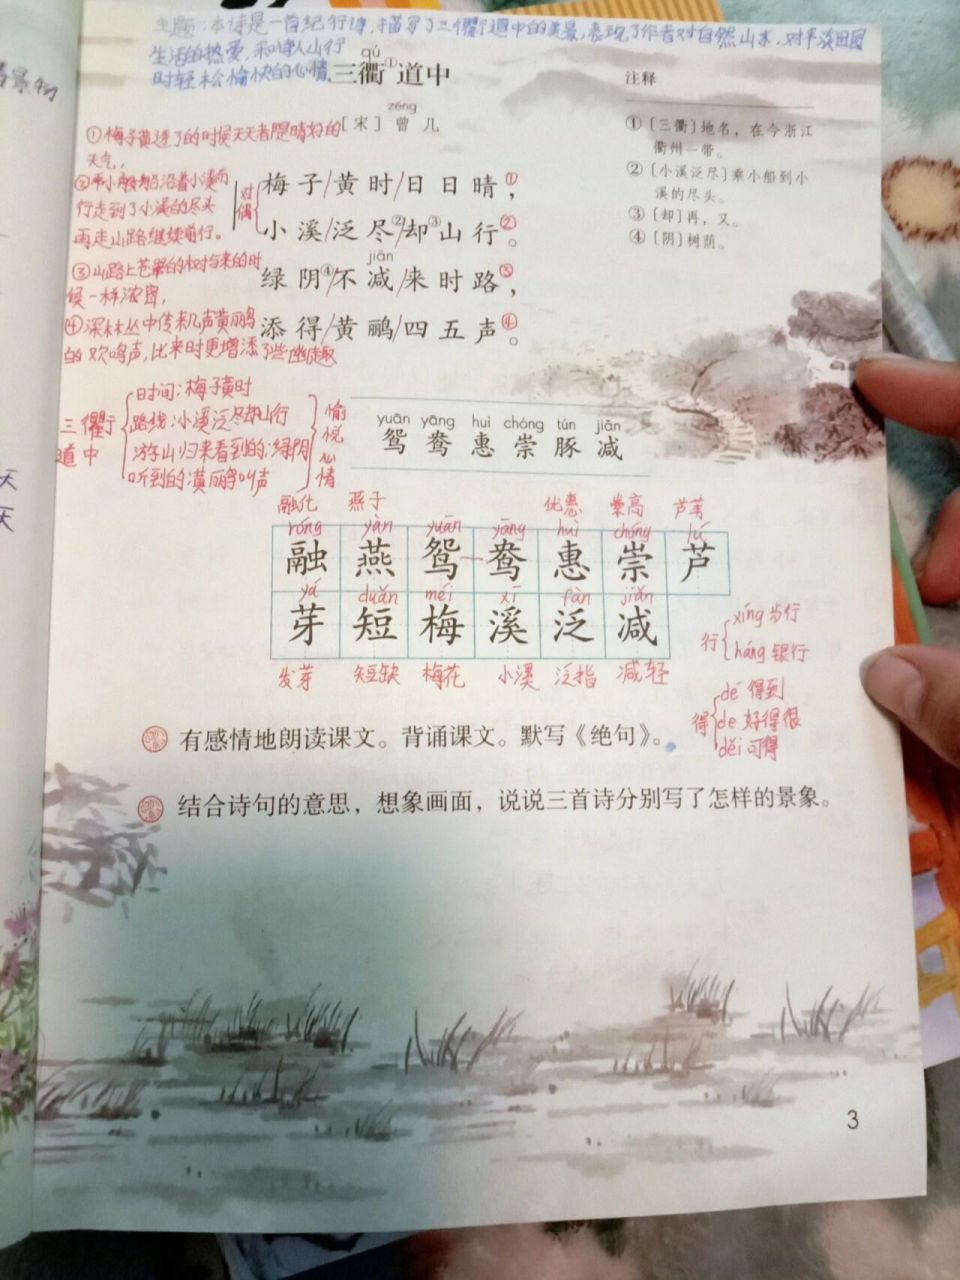 主题:本诗是一首纪行诗,描写了三衢道中的美景,表现了作者对自然山水,对平淡田园
生活的热爱,和诗人山行
时轻松愉快的心情。
qú
三衢①道中
zēng
[宋]曾几
梅子/黄时/日日晴,①
小溪/泛尽②/却③山行。②
jiǎn
绿阴④/不减/来时路,③
添得/黄鹂/四五声。④
对偶
①梅子黄透了的时候天天都是晴好的
天气,
②乘小船沿着小溪而
行走到了小溪的尽头
再走山路继续前行。
③山路上苍翠的树与来的时
候一样浓密,
④深林丛中传来几声黄鹂
的欢鸣声,比来时更增添了些幽趣
注释
①〔三衢〕地名,在今浙江
衢州一带。
②〔小溪泛尽〕乘小船到小
溪的尽头。
③〔却〕再,又。
④〔阴〕树荫。
三衢
道中
时间:梅子黄时
路线:小溪泛尽却山行
游山归来看到的:绿阴
听到的:黄鹂叫声
愉悦心情
yuān yāng huì chóng tún jiǎn
鸳鸯惠崇豚减
融化 燕子 优惠 崇高 芦苇
róng yàn yuān yāng huì chóng lú
融燕鸳鸯惠崇芦
yá duǎn méi xī fàn jiǎn
芽短梅溪泛减
发芽 短缺 梅花 小溪 泛指 减轻
行
xíng 步行
háng 银行
得
dé 得到
de 好得很
děi 可得
有感情地朗读课文。背诵课文。默写《绝句》。
结合诗句的意思,想象画面,说说三首诗分别写了怎样的景象。
3